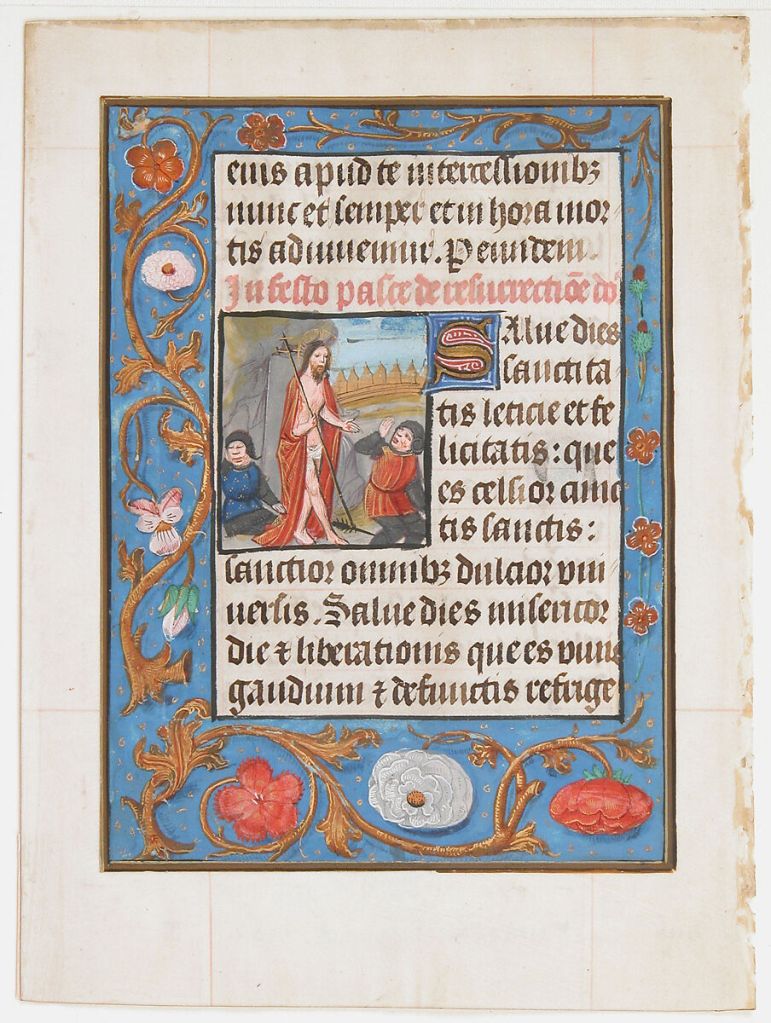 eius apud te intercessionibꝫ
nunc et semper et in hora mor
tis adiuuemur. P eundem.
In festo pasce de resurrectiōe dō
Salue dies
sanctita
tis leticie et fe
licitatis: que
es celsior cunc
tis sanctis:
sanctior omnibꝫ dulcior vni
uersis. Salue dies misericor
die ⁊ liberationis que es viuis
gaudium ⁊ defunctis refrige